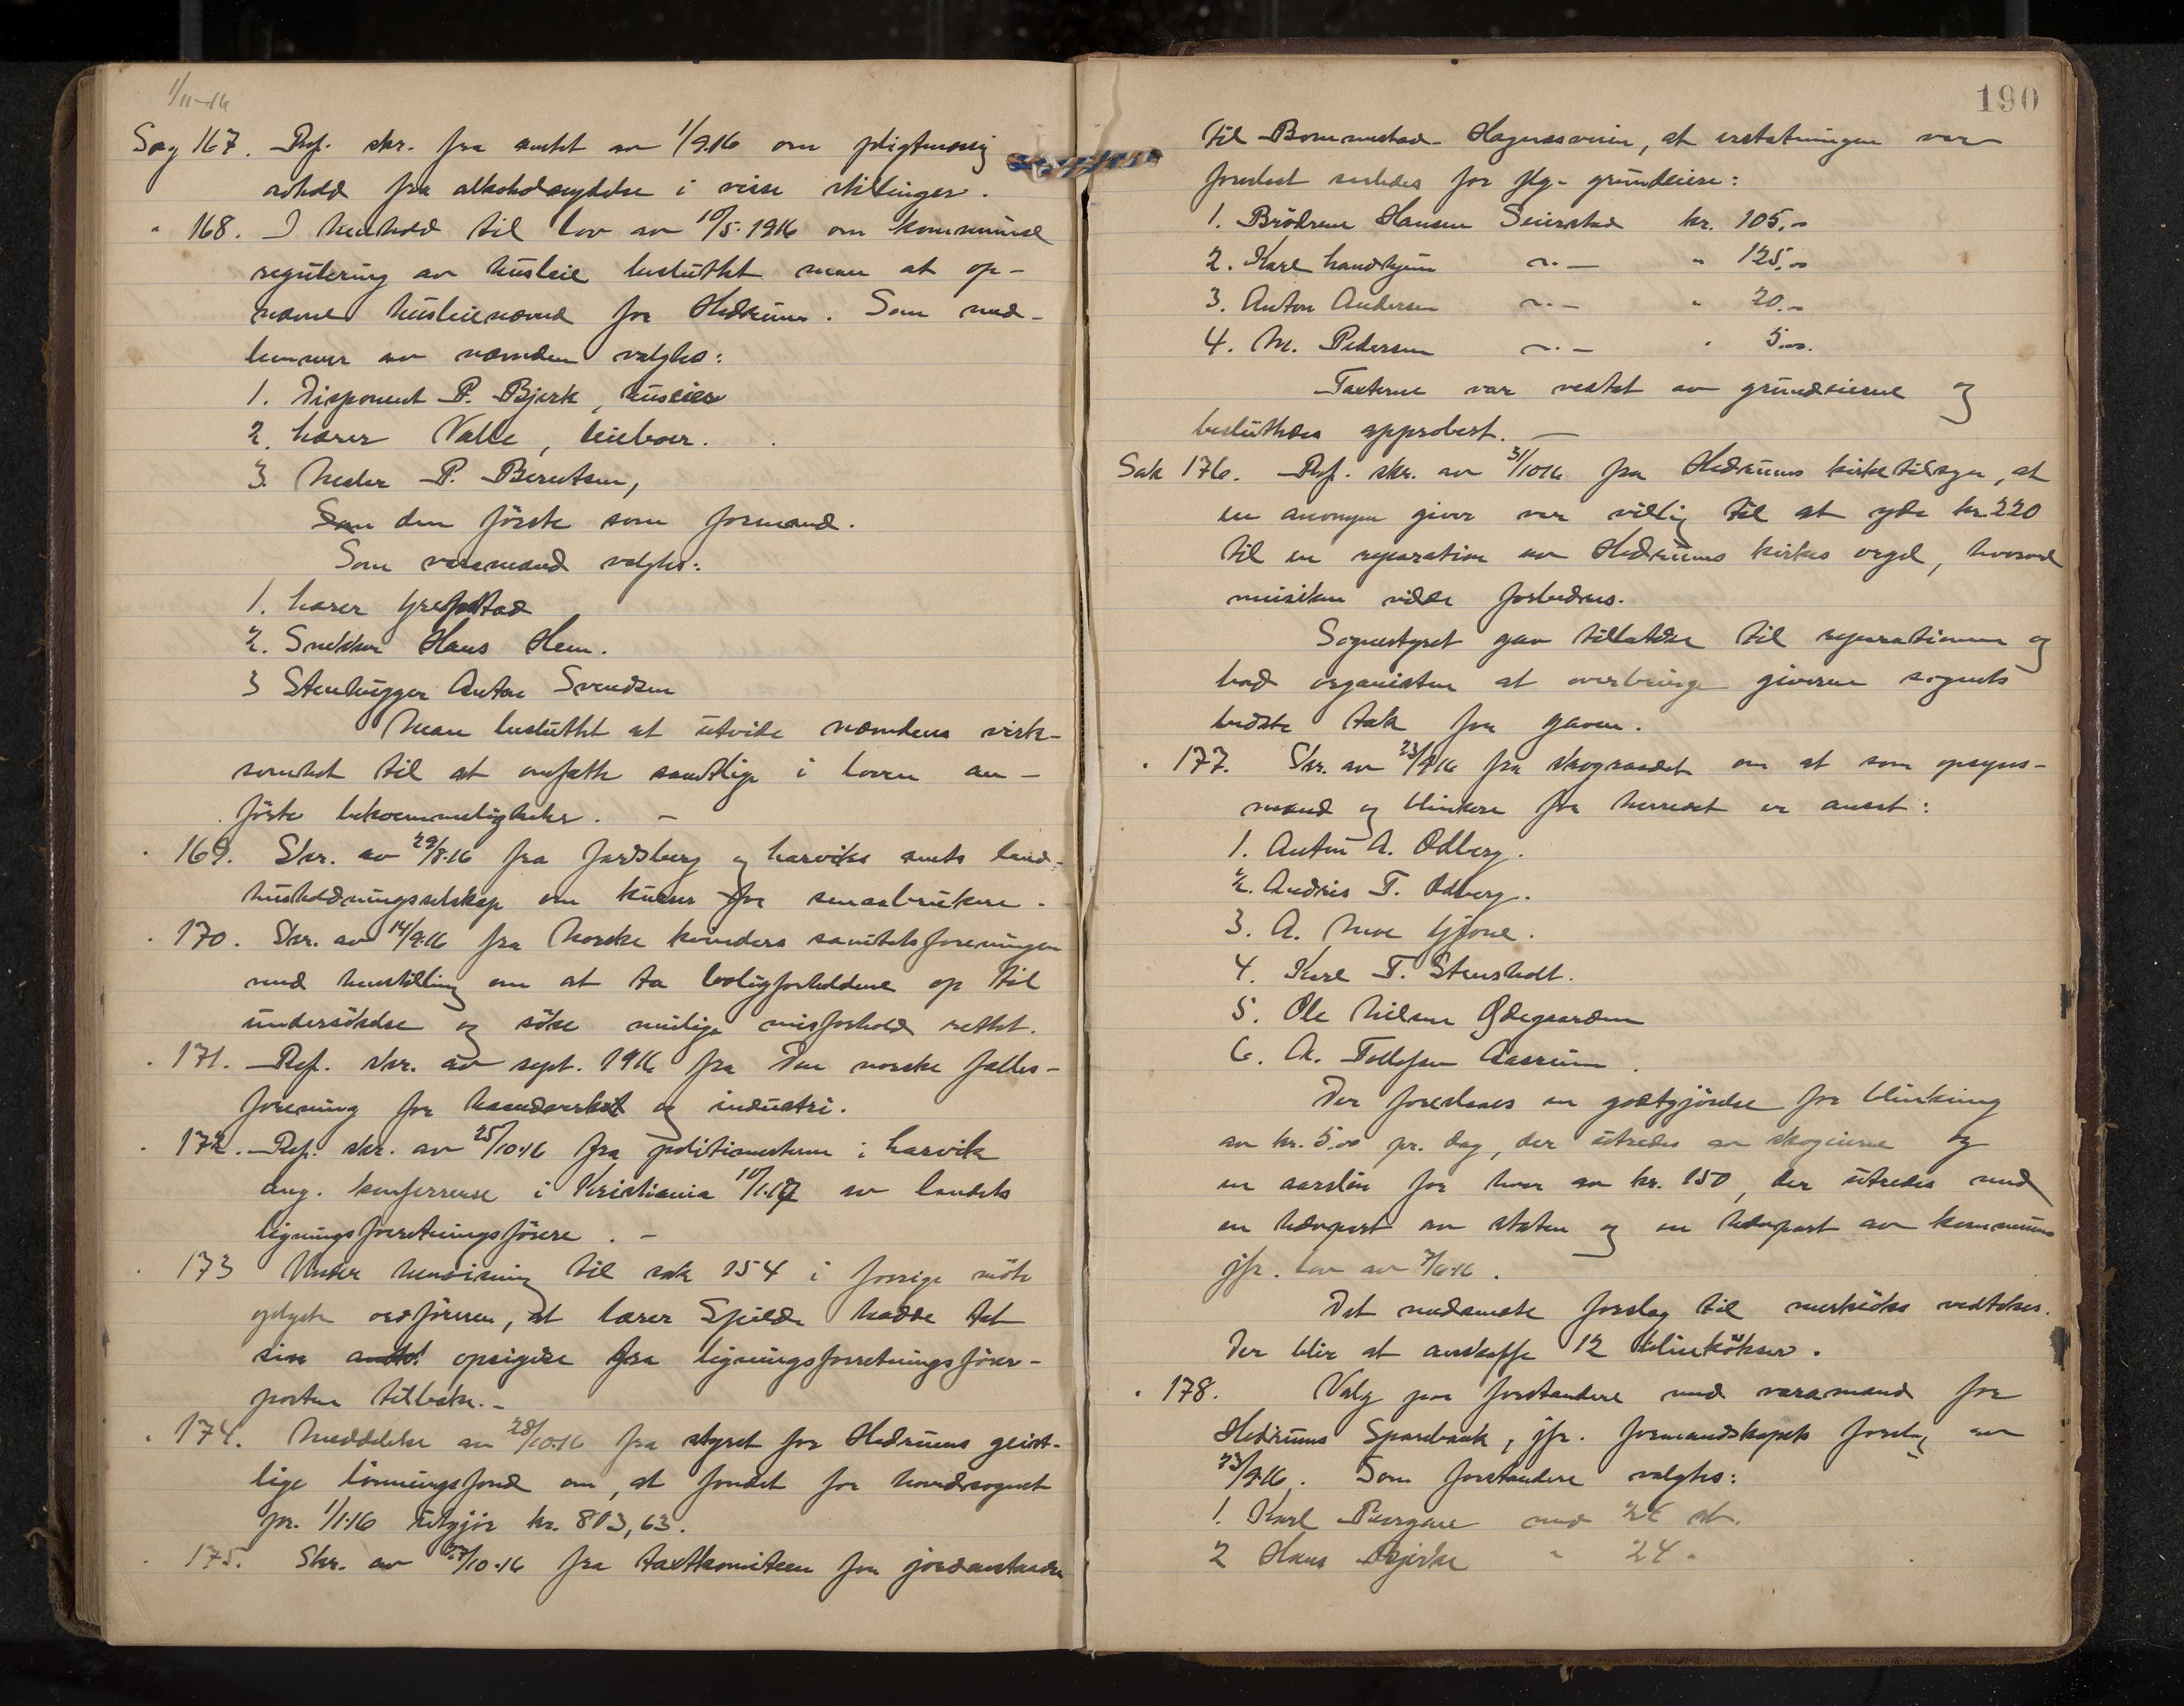 1/11-16
Sag 167. Ref. skr. fra amtet av 1/9.16 om pligtmæssig
avhold fra alkoholnydelse i visse stillinger.
" 168. I henhold til lov av 10/5.1916 om kommunal
regulering av husleie besluttet man at op-
nævne husleienævnd for Hedrum. Som med-
lemmer av nævnden valgtes:
1. Disponent P. Bjerk, huseier
2. Lærer Valle, leieboer.
3. Meder P. Berntsen,
den første som formand.
Som varamænd valgtes:
1. Lærer Grefstad
2. Snekker Hans Hem.
3 Stenhugger Anton Svendsen
Man besluttet at utvide nævndens virk-
somhet til at omfatte samtlige i loven an-
førte bekvemmeligheter. -
" 169. Skr. av 29/8.16 fra Jarlsberg og Larviks amts land-
husholdningsselskap om kurser for smaabrukere.
" 170. Skr. av 14/9.16 fra Norske kvinders sanitetsforeninger
med henstilling om at ta boligforholdene op til
undersøkelse og søke mulige misforhold rettet.
" 171. Ref. skr. av sept. 1916 fra Den norske fælles-
forening for haandverket og industri.
" 172. Ref. skr. av 25/10.16 fra politimesteren i Larvik
ang. konferrense i Kristiania 10/1.17 av landets
ligningsforretningsførere. -
" 173 Under henvisning til sak 154 i forrige møte
oplyste ordføreren, at lærer Spilde hadde tat
sin opsigelse fra ligningsforretningsfører-
posten tilbake. -
" 174. Meddelelse av 28/10.16 fra styret for Hedrums geist-
lige lønningsfond om, at fondet for hovedsognet
pr. 1/1.16 utgjør kr. 803,63.
" 175. Skr. av 27/10.16 fra takstkomiteen for jordavstaaelse
190
til Bommestad-Hagnesveien, at erstatningen var
foreslaat saaledes for flg. grundeiere:
1. Brødrene Hansen Seierstad kr. 105,00
2. Karl " 125,00
3. Anton Andersen ~.- " 20.-
4. M. Pedersen ~.- " 5.00.
Taksterne var vedtat av grundeierne og
besluttedes approbert. -
Sak 176. Ref. skr. av 31/10.16 fra Hedrums kirketilsyn, at
en anonym giver var villig til at yde kr. 220
til en reparation av Hedrums kirkes orgel, hvorved
musiken vilde forbedres.
Sognestyret gav tillatelse til reparationen og
bad organisten at overbringe giveren sognets
bedste tak for gaven.
" 177. Skr. av 23/9.16 fra skograadet om at som opsyns-
mænd og blinkere for herredet er ansat:
1. Anton A. Odberg.
2. Andreas T. Odberg.
3. A. Moe Gjone.
4. Karl T. Stensholt.
5. Ole Nilsen Ødegaarden
6. A. Tollefsen Aasrum.
Der foreslaaes en godtgjørelse for blinkning
av kr. 5.00 pr. dag, der utredes av skogeierne og
en aarsløn for hver av kr. 150, der utredes med
en halvpart av staten og en halvpart av kommunen
jfr. lov av 7/6.16.
Det medsendte forslag til vedtokes.
Der blir at anskaffe 12 blinkøkser.
" 178. Valg paa forstandere med varamænd for
Hedrums Sparebank, jfr. formandskapets forslag av
23/9.16. Som forstandere valgtes:
1. Karl med 24 st.
2 Hans Bjerke " 24 "